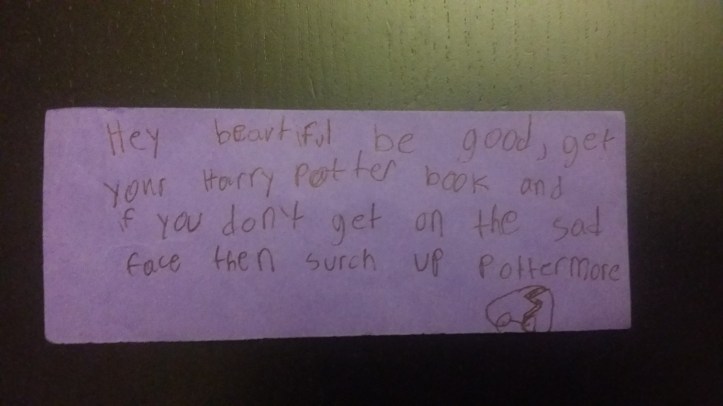 Hey beautiful be good, get
your Harry Potter book and
if you don't get on the sad
face then surch up Pottermore